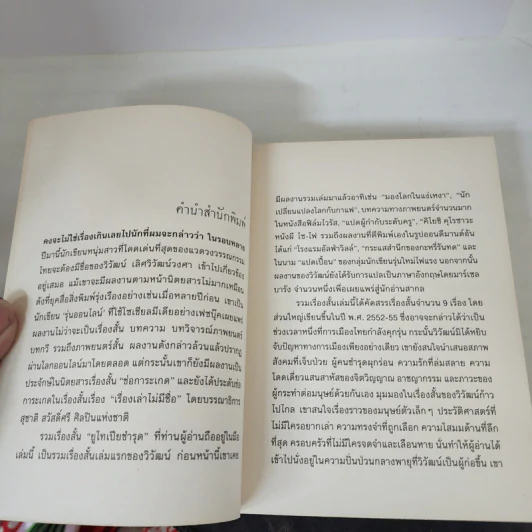 คำนำสำนักพิมพ์
คงจะไม่ใช่เรื่องเกินเลยไปนักที่ผมจะกล่าวว่า ในรอบหลาย
ปีมานี้นักเขียนหนุ่มสาวที่โดดเด่นที่สุดของแวดวงวรรณกรรม
ไทยจะต้องมีชื่อของวิวัฒน์ เลิศวิวัฒน์วงศา เข้าไปเกี่ยวข้อง
อยู่เสมอ แม้เขาจะมีผลงานตามหน้านิตยสารไม่มากเหมือน
ดังที่ยุคสื่อสิ่งพิมพ์รุ่งเรืองอย่างเมื่อหลายปีก่อน เขาเป็น
นักเขียน 'รุ่นออนไลน์' ที่ใช้โซเชียลมีเดียอย่างเฟซบุ๊คเผยแพร่
ผลงานไม่ว่าจะเป็นเรื่องสั้น บทความ บทวิจารณ์ภาพยนตร์
บทกวี รวมถึงภาพยนตร์สั้น ผลงานดังกล่าวล้วนปรากฏ
ผ่านโลกออนไลน์มาโดยตลอด แต่กระนั้นเขาก็ยังมีผลงานเป็น
ประจักษ์ในนิตยสารเรื่องสั้น "ช่อการะเกด" และยังได้ประดับช่อ
การะเกดในเรื่องสั้นเรื่อง "เรื่องเล่าไม่มีชื่อ" โดยบรรณาธิการ
สุชาติ สวัสดิ์ศรี ศิลปินแห่งชาติ
รวมเรื่องสั้น "ยูโทเปียชำรุด" ที่ท่านผู้อ่านถืออยู่ในมือ
เล่มนี้ เป็นรวมเรื่องสั้นเล่มแรกของวิวัฒน์ ก่อนหน้านี้เขาเคย
มีผลงานรวมเล่มมาแล้วอาทิเช่น "มองโลกในแง่เหงา", "นัก
เปลี่ยนแปลงโลกกับกาแฟ", บทความทางภาพยนตร์จำนวนมาก
ในหนังสือฟิล์มไวรัส, "แปดผู้กำกับระดับครู", "คิโยชิ คุโรซาวะ
หนังผี ไซ-ไฟ รวมถึงผลงานที่ตีพิมพ์เองในรูปออนดีมานด์อัน
ได้แก่ "โรงแรมอัลฟ่าวิลล์", "กระแสสำนึกของกะหรี่รันทด" และ
ในนาม "แปดเปื้อน" ของกลุ่มนักเขียนรุ่นใหม่ไฟแรง นอกจากนั้น
ผลงานของวิวัฒน์ยังได้รับการแปลเป็นภาษาอังกฤษโดยมาร์เซล
บารัง จำนวนหนึ่งเพื่อเผยแพร่สู่นักอ่านสากล
รวมเรื่องสั้นเล่มนี้ได้คัดสรรเรื่องสั้นจำนวน 9 เรื่อง โดย
ส่วนใหญ่เขียนขึ้นในปี พ.ศ. 2552-55 ซึ่งอาจจะกล่าวได้ว่าเป็น
ช่วงเวลาหนึ่งที่การเมืองไทยกำลังคุกรุ่น กระนั้นวิวัฒน์มิได้หยิบ
จับปัญหาทางการเมืองเพียงอย่างเดียว เขายังสนใจนำเสนอสภาพ
สังคมที่เจ็บป่วย ผู้คนชำรุดผุกร่อน ความรักที่ล่มสลาย ความ
โดดเดี่ยวแสนสาหัสของจิตวิญญาณ อาชญากรรม และภาวะของ
ผู้กระทำต่อมนุษย์ด้วยกันเอง มุมมองในเรื่องสั้นของวิวัฒน์ก้าว
ไปไกล เขาสนใจเรื่องราวของมนุษย์ตัวเล็ก ๆ ประวัติศาสตร์ที่
ไม่มีใครอยากเล่า ความทรงจำที่ถูกเลือก ความโสมมด้านที่ลึก
ที่สุด ครอบครัวที่ไม่มีใครจดจำและเลือนหาย นั่นทำให้ผู้อ่านได้
เข้าไปนั่งอยู่ในความปั่นป่วนกลางพายุที่วิวัฒน์เป็นผู้ก่อขึ้น เขา